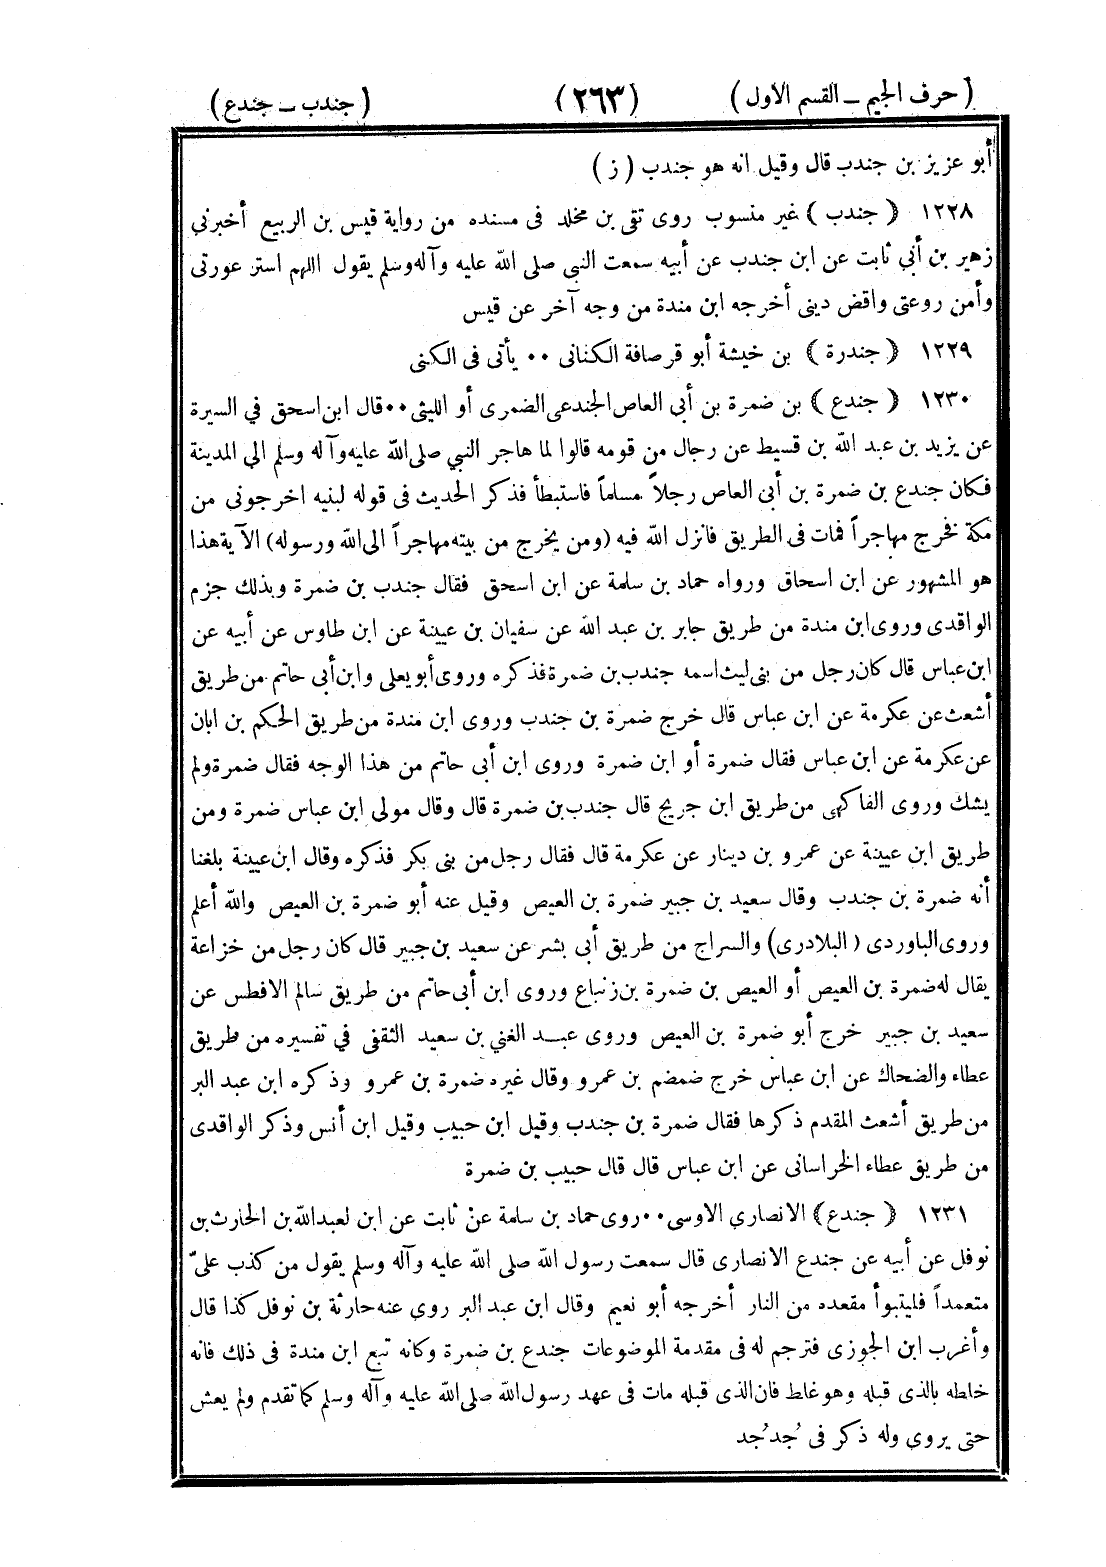 ( حرف الجيم – القسم الاول ) (٢٦٣) ( جندب – جندع )
أبو عزيز بن جندب قال وقيل انه هو جندب ( ز )
١٢٢٨ ( جندب ) غير منسوب روى تقى بن مخلد فى مسنده من رواية قيس بن الربيع أخبرني
زهير بن أبي ثابت عن ابن جندب عن أبيه سمعت النبى صلى الله عليه وآله وسلم يقول اللهم استر عورتى
وأمن روعتى واقض دينى أخرجه ابن مندة من وجه آخر عن قيس
١٢٢٩ ( جندرة ) بن خيشة أبو قرصافة الكنانى ٠٠ يأتى فى الكنى
١٢٣٠ ( جندع ) بن ضمرة بن أبي العاص الجندعى الضمرى أو الليثى ٠٠ قال ابن اسحق في السيرة
عن يزيد بن عبد الله بن قسيط عن رجال من قومه قالوا لما هاجر النبي صلى الله عليه وآله وسلم الي المدينة
فكان جندع بن ضمرة بن أبى العاص رجلاً مسلماً فاستبطأ فذكر الحديث فى قوله لبنيه اخرجونى من
مكة فخرج مهاجراً فمات فى الطريق فانزل الله فيه (ومن يخرج من بيته مهاجراً الى الله ورسوله) الآية هذا
هو المشهور عن ابن اسحاق ورواه حماد بن سلمة عن ابن اسحق فقال جندب بن ضمرة وبذلك جزم
الواقدى وروى ابن مندة من طريق جابر بن عبد الله عن سفيان بن عيينة عن ابن طاوس عن أبيه عن
ابن عباس قال كان رجل من بنى ليث اسمه جندب بن ضمرة فذكره وروى أبو يعلى وابن أبى حاتم من طريق
أشعث عن عكرمة عن ابن عباس قال خرج ضمرة بن جندب وروى ابن مندة من طريق الحكم بن ابان
عن عكرمة عن ابن عباس فقال ضمرة أو ابن ضمرة وروى ابن أبى حاتم من هذا الوجه فقال ضمرة ولم
يشك وروى الفاكهى من طريق ابن جريج قال جندب بن ضمرة قال وقال مولى ابن عباس ضمرة ومن
طريق ابن عيينة عن عمرو بن دينار عن عكرمة قال فقال رجل من بنى بكر فذكره وقال ابن عيينة بلغنا
أنه ضمرة بن جندب وقال سعيد بن جبير ضمرة بن العيص وقيل عنه أبو ضمرة بن العيص والله أعلم
وروى الباوردى ( البلادرى ) والسراج من طريق أبى بشر عن سعيد بن جبير قال كان رجل من خزاعة
يقال له ضمرة بن العيص أو العيص بن ضمرة بن زنباع وروى ابن أبى حاتم من طريق سالم الافطس عن
سعيد بن جبير خرج أبو ضمرة بن العيص وروى عبد الغني بن سعيد الثقفى في تفسيره من طريق
عطاء والضحاك عن ابن عباس خرج ضمضم بن عمرو وقال غيره ضمرة بن عمرو وذكره ابن عبد البر
من طريق أشعث المقدم ذكرها فقال ضمرة بن جندب وقيل ابن حبيب وقيل ابن أنس وذكر الواقدى
من طريق عطاء الخراسانى عن ابن عباس قال قال حبيب بن ضمرة
١٢٣١ ( جندع ) الانصاري الاوسى ٠٠ روى حماد بن سلمة عن ثابت عن ابن لعبد الله بن الحارث بن
نوفل عن أبيه عن جندع الانصارى قال سمعت رسول الله صلى الله عليه وآله وسلم يقول من كذب علىّ
متعمداً فليتبوأ مقعده من النار أخرجه أبو نعيم وقال ابن عبد البر روى عنه حارثة بن نوفل كذا قال
وأغرب ابن الجوزى فترجم له فى مقدمة الموضوعات جندع بن ضمرة وكانه تبع ابن مندة فى ذلك فانه
خلطه بالذى قبله وهو غلط فان الذى قبله مات فى عهد رسول الله صلى الله عليه وآله وسلم كما تقدم ولم يعش
حتى يروى وله ذكر فى جُدجُد